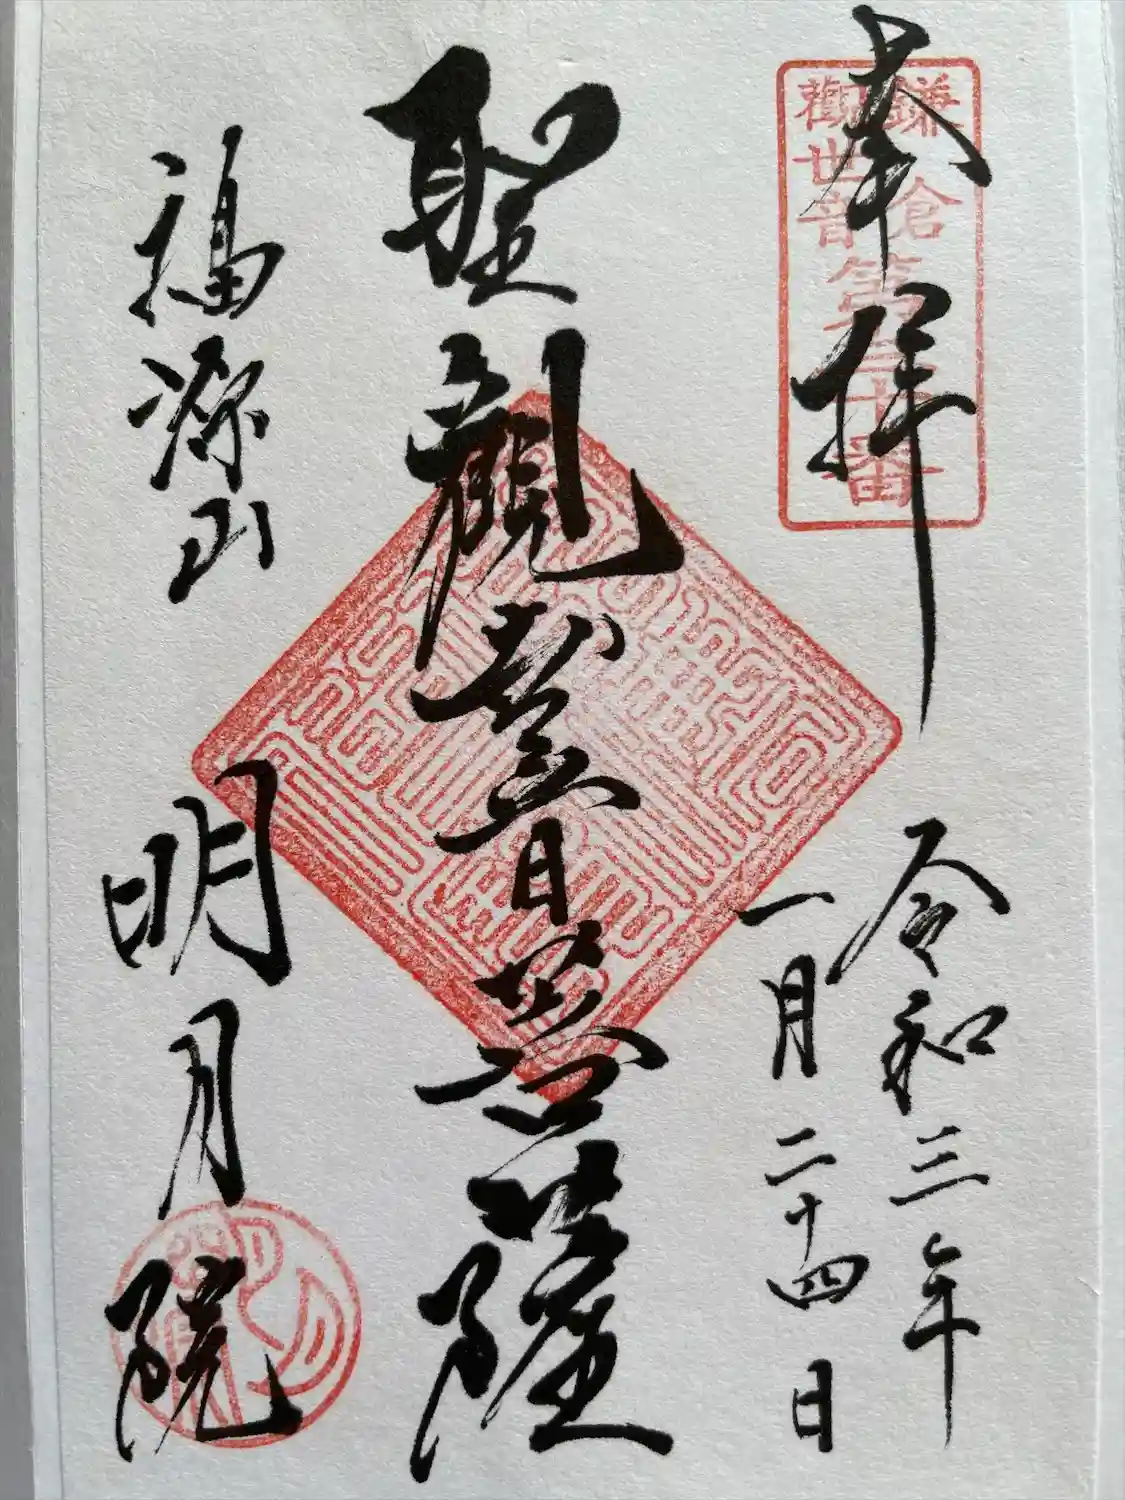 奉拝
鎌倉
觀世音
第三十番
令和三年
一月二十四日
聖觀世音菩薩
福源山
明月院